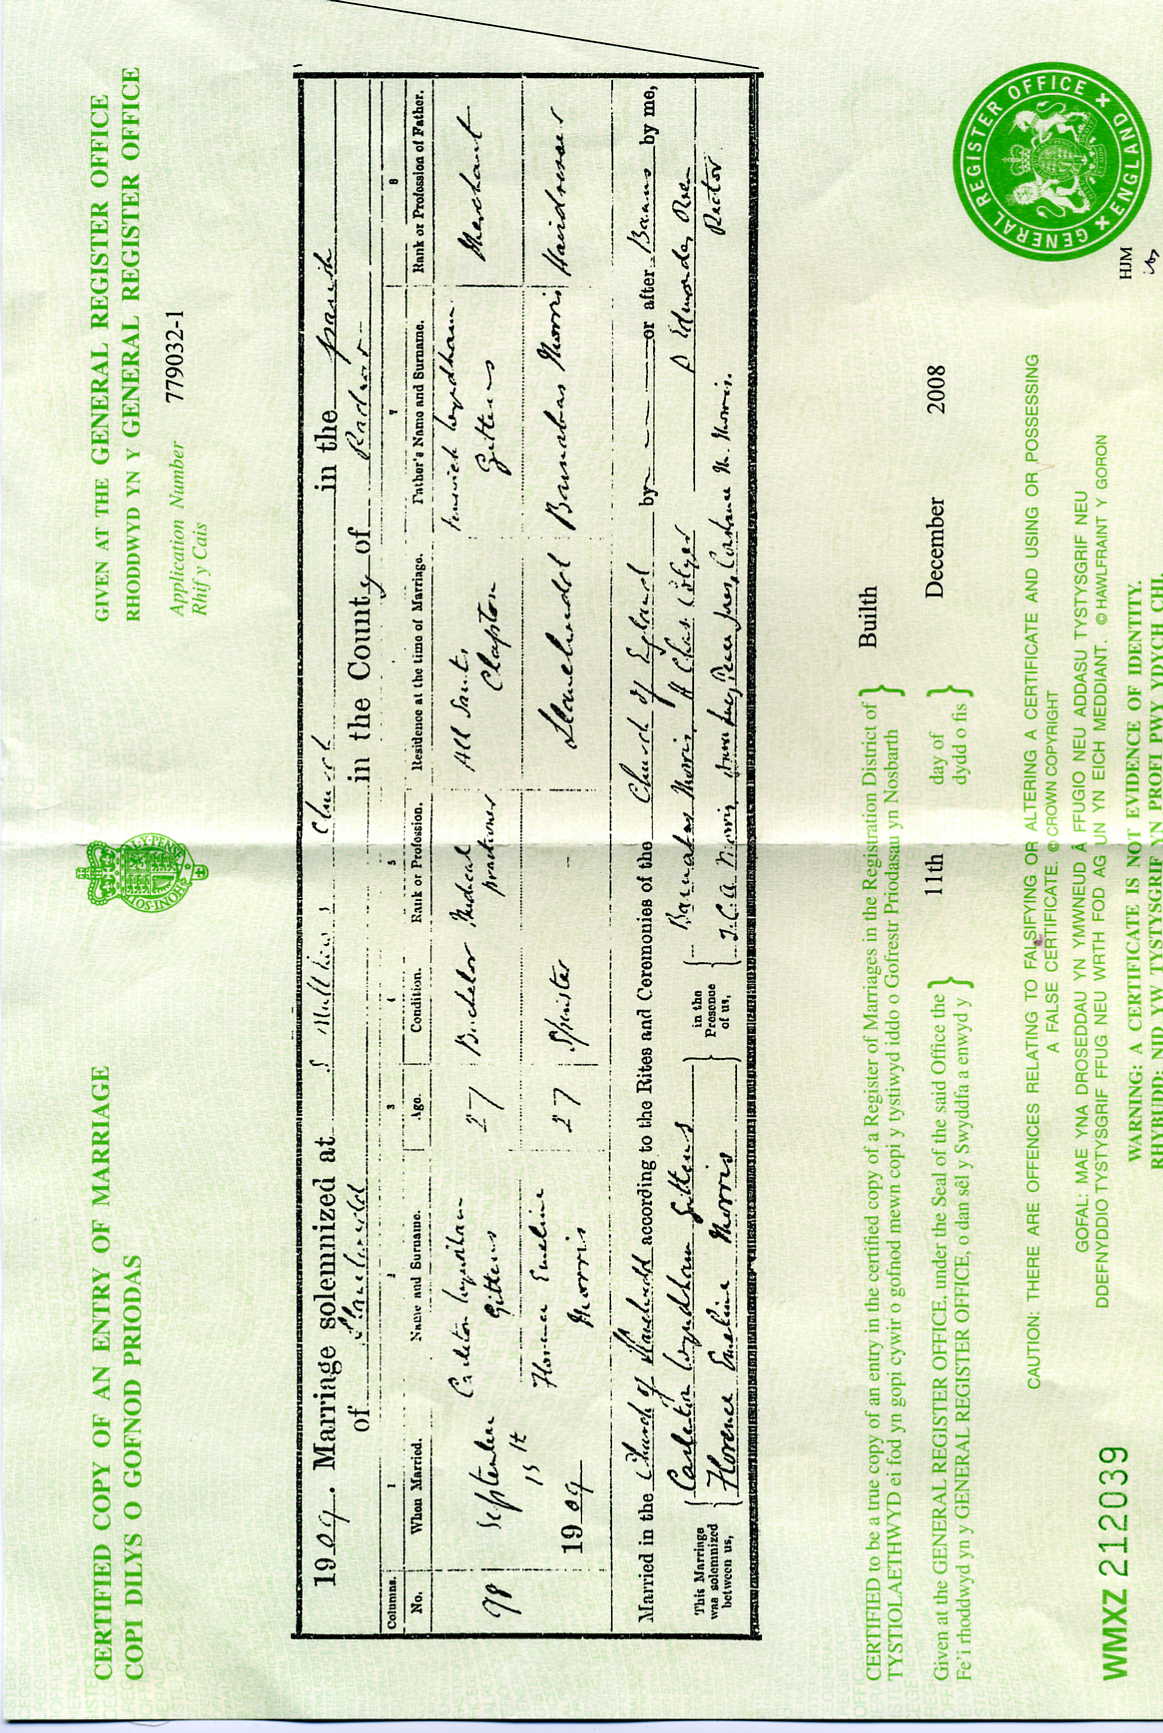 CERTIFIED COPY OF AN ENTRY OF MARRIAGE
COPI DILYS O GOFNOD PRIODAS
GIVEN AT THE GENERAL REGISTER OFFICE
RHODDWYD YN Y GENERAL REGISTER OFFICE
Application Number 779032-1
Rhif y Cais
1909. Marriage solemnized at S Matthew's Church in the parish
of Llanelwedd in the County of Radnor
Columns. 1 2 3 4 5 6 7 8
No. When Married. Name and Surname. Age. Condition. Rank or Profession. Residence at the time of Marriage. Father's Name and Surname. Rank or Profession of Father.
98 September 15th 1909
Carleton Wyndham Gittens 27 Bachelor Medical practioner All Saints Clapton Fenwick Wyndham Gittens Merchant
Florence Emeline Morris 27 Spinster — Llanelwedd Barnabas Morris Hairdresser
Married in the Church of Llanelwedd according to the Rites and Ceremonies of the Church of England by — or after Banns by me,
This Marriage was solemnized between us,
Carleton Wyndham Gittens
Florence Emeline Morris
in the Presence of us,
Barnabas Morris, H Chas
J. C. A. Morris, Jones, Constance M. Morris.
Edmondes Owen
Rector
CERTIFIED to be a true copy of an entry in the certified copy of a Register of Marriages in the Registration District of } Builth
TYSTIOLAETHWYD ei fod yn gopi cywir o gofnod mewn copi y tystiwyd iddo o Gofrestr Priodasau yn Nosbarth
Given at the GENERAL REGISTER OFFICE, under the Seal of the said Office the } 11th day of } December 2008
Fe'i rhoddwyd yn y GENERAL REGISTER OFFICE, o dan sêl y Swyddfa a enwyd y dydd o fis
CAUTION: THERE ARE OFFENCES RELATING TO FALSIFYING OR ALTERING A CERTIFICATE AND USING OR POSSESSING
A FALSE CERTIFICATE. © CROWN COPYRIGHT
GOFAL: MAE YNA DROSEDDAU YN YMWNEUD Â FFUGIO NEU ADDASU TYSTYSGRIF NEU
DDEFNYDDIO TYSTYSGRIF FFUG NEU WRTH FOD AG UN YN EICH MEDDIANT. © HAWLFRAINT Y GORON
WARNING: A CERTIFICATE IS NOT EVIDENCE OF IDENTITY.
RHYBUDD: NID YW TYSTYSGRIF YN PROFI PWY YDYCH CHI.
WMXZ 212039
GENERAL REGISTER OFFICE
ENGLAND
HJM